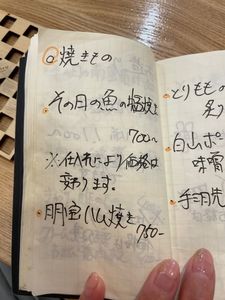 焼きもの
その日の魚の塩焼き
700~
※仕入れにより価格は
変わります。
明宝ハム焼き
750-
とりもも
炙り
白山ポ
味噌
手羽先